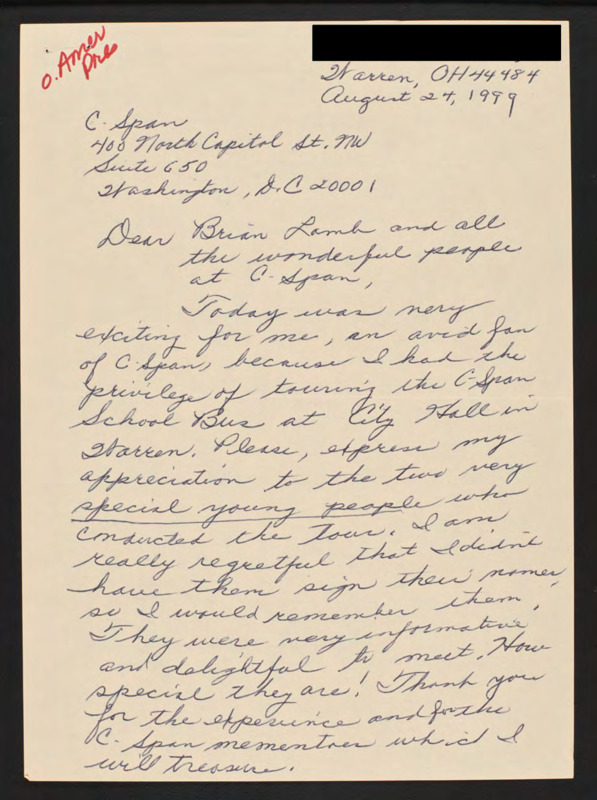 O. Amer
Pres
Warren, OH 44484
August 24, 1999
C-Span
400 North Capitol St. NW
Suite 650
Washington, D.C 20001
Dear Brian Lamb and all
the wonderful people
at C-Span,
Today was very
exciting for me, an avid fan
of C-Span, because I had the
privilege of touring the C-Span
School Bus at City Hall in
Warren. Please, express my
appreciation to the two very
special young people who
conducted the tour. I am
really regretful that I didn't
have them sign their names,
so I would remember them.
They were very informative
and delightful to meet. How
special they are! Thank you
for the experience and for the
C-Span mementoes which I
will treasure.